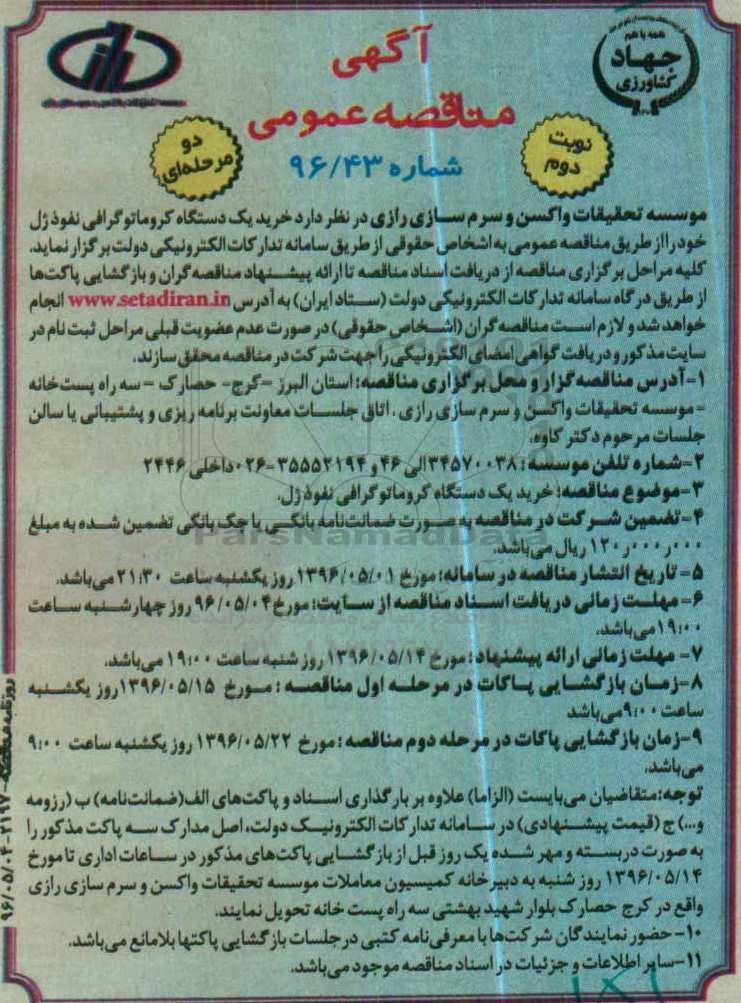 همه با هم
جهاد
کشاورزی
آگهی
مناقصه عمومی
شماره ۹۶/۴۳
نوبت
دوم
دو
مرحله‌ای
موسسه تحقیقات واکسن و سرم سازی رازی در نظر دارد خرید یک دستگاه کروماتوگرافی نفوذ ژل
خود را از طریق مناقصه عمومی به اشخاص حقوقی از طریق سامانه تدارکات الکترونیکی دولت برگزار نماید.
کلیه مراحل برگزاری مناقصه از دریافت اسناد مناقصه تا ارائه پیشنهاد مناقصه‌گران و بازگشایی پاکت‌ها
از طریق درگاه سامانه تدارکات الکترونیکی دولت (ستاد ایران) به آدرس www.setadiran.in انجام
خواهد شد و لازم است مناقصه‌گران (اشخاص حقوقی) در صورت عدم عضویت قبلی مراحل ثبت نام در
سایت مذکور و دریافت گواهی امضای الکترونیکی را جهت شرکت در مناقصه محقق سازند.
۱-آدرس مناقصه‌گزار و محل برگزاری مناقصه: استان البرز -کرج- حصارک - سه راه پست خانه
- موسسه تحقیقات واکسن و سرم سازی رازی ، اتاق جلسات معاونت برنامه ریزی و پشتیبانی یا سالن
جلسات مرحوم دکتر کاوه.
۲-شماره تلفن موسسه: ۳۴۵۷۰۰۳۸ الی ۴۶ و ۳۵۵۵۲۱۹۴-۰۲۶ داخلی ۲۴۴۶
۳-موضوع مناقصه: خرید یک دستگاه کروماتوگرافی نفوذ ژل.
۴-تضمین شرکت در مناقصه به صورت ضمانت‌نامه بانکی یا چک بانکی تضمین شده به مبلغ
۱۲۰ر۰۰۰ر۰۰۰ ریال می‌باشد.
۵- تاریخ انتشار مناقصه در سامانه: مورخ ۱۳۹۶/۰۵/۰۱ روز یکشنبه ساعت ۲۱:۳۰ می‌باشد.
۶- مهلت زمانی دریافت اسناد مناقصه از سایت: مورخ ۹۶/۰۵/۰۴ روز چهارشنبه ساعت
۱۹:۰۰ می‌باشد.
۷- مهلت زمانی ارائه پیشنهاد: مورخ ۱۳۹۶/۰۵/۱۴ روز شنبه ساعت ۱۹:۰۰ می‌باشد.
۸-زمان بازگشایی پاکات در مرحله اول مناقصه : مورخ ۱۳۹۶/۰۵/۱۵ روز یکشنبه
ساعت ۹:۰۰ می‌باشد
۹-زمان بازگشایی پاکات در مرحله دوم مناقصه: مورخ ۱۳۹۶/۰۵/۲۲ روز یکشنبه ساعت ۹:۰۰
می‌باشد.
توجه: متقاضیان می‌بایست (الزاما) علاوه بر بارگذاری اسناد و پاکت‌های الف(ضمانت‌نامه) ب (رزومه
و...) ج (قیمت پیشنهادی) در سامانه تدارکات الکترونیک دولت، اصل مدارک سه پاکت مذکور را
به صورت دربسته و مهر شده یک روز قبل از بازگشایی پاکت‌های مذکور در ساعات اداری تا مورخ
۱۳۹۶/۰۵/۱۴ روز شنبه به دبیرخانه کمیسیون معاملات موسسه تحقیقات واکسن و سرم سازی رازی
واقع در کرج حصارک بلوار شهید بهشتی سه راه پست خانه تحویل نمایند.
۱۰- حضور نمایندگان شرکت‌ها با معرفی‌نامه کتبی در جلسات بازگشایی پاکتها بلامانع می‌باشد.
۱۱-سایر اطلاعات و جزئیات در اسناد مناقصه موجود می‌باشد.
ParsNamadData